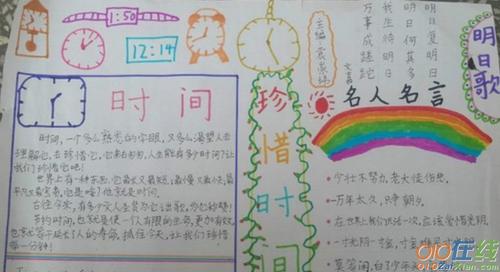 1:50
12:14
时间
时间,一个多么熟悉的字眼,又多么渴望人去
理解它,去珍惜它,
让我们珍惜它吧!
世界上有一种东西,它最长又最短,最慢又最快,最
它是啥?他就是时间。
古往今来,有多少文人
节约时间,也就是使一个有限的生命,更加有效,
也就等于延长了人的寿命。抓住今天,让我们珍惜
每一分钟!
珍惜时间
主编
明日复明日
明日何其多
我生待明日
万事成蹉跎
文嘉
明日歌
名人名言
少壮不努力,老大徒伤悲。
一万年太久,只争朝夕。
一寸光阴一寸金,寸金难买寸光阴
莫等闲,白了少年
010在线
ZaiXian.com